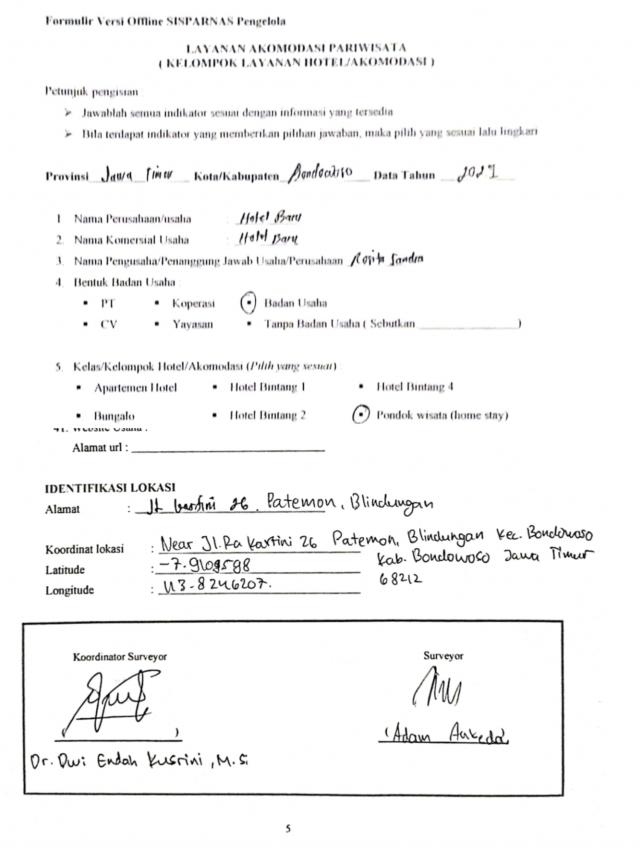 Formulir Versi Offline SISPARNAS Pengelola
LAYANAN AKOMODASI PARIWISATA
( KELOMPOK LAYANAN HOTEL/AKOMODASI )
Petunjuk pengisian
➤ Jawablah semua indikator sesuai dengan informasi yang tersedia
➤ Bila terdapat indikator yang memberikan pilihan jawaban, maka pilih yang sesuai lalu lingkari
Provinsi Jawa Timur Kota/Kabupaten Bondowoso Data Tahun 2021
1 Nama Perusahaan/usaha : Hotel Baru
2. Nama Komersial Usaha : Hotel Baru
3. Nama Pengusaha/Penanggung Jawab Usaha/Perusahaan Rosita Sandra
4. Bentuk Badan Usaha
▪ PT ▪ Koperasi ▪ Badan Usaha
▪ CV ▪ Yayasan ▪ Tanpa Badan Usaha ( Sebutkan ____________)
5. Kelas/Kelompok Hotel/Akomodasi (Pilih yang sesuai)
▪ Apartemen Hotel ▪ Hotel Bintang 1 ▪ Hotel Bintang 4
▪ Bungalo ▪ Hotel Bintang 2 ▪ Pondok wisata (home stay)
Alamat url : ____________
IDENTIFIKASI LOKASI
Alamat : Jl. kartini 26, Patemon, Blindungan
Koordinat lokasi : Near Jl.Ra Kartini 26 Patemon, Blindungan Kec. Bondowoso
Kab. Bondowoso Jawa Timur
Latitude : -7.9109598
68212
Longitude : 113.8246207.
Koordinator Surveyor Surveyor
( ) (Adam )
Dr. Dwi Endah Kusrini, M.Si
5